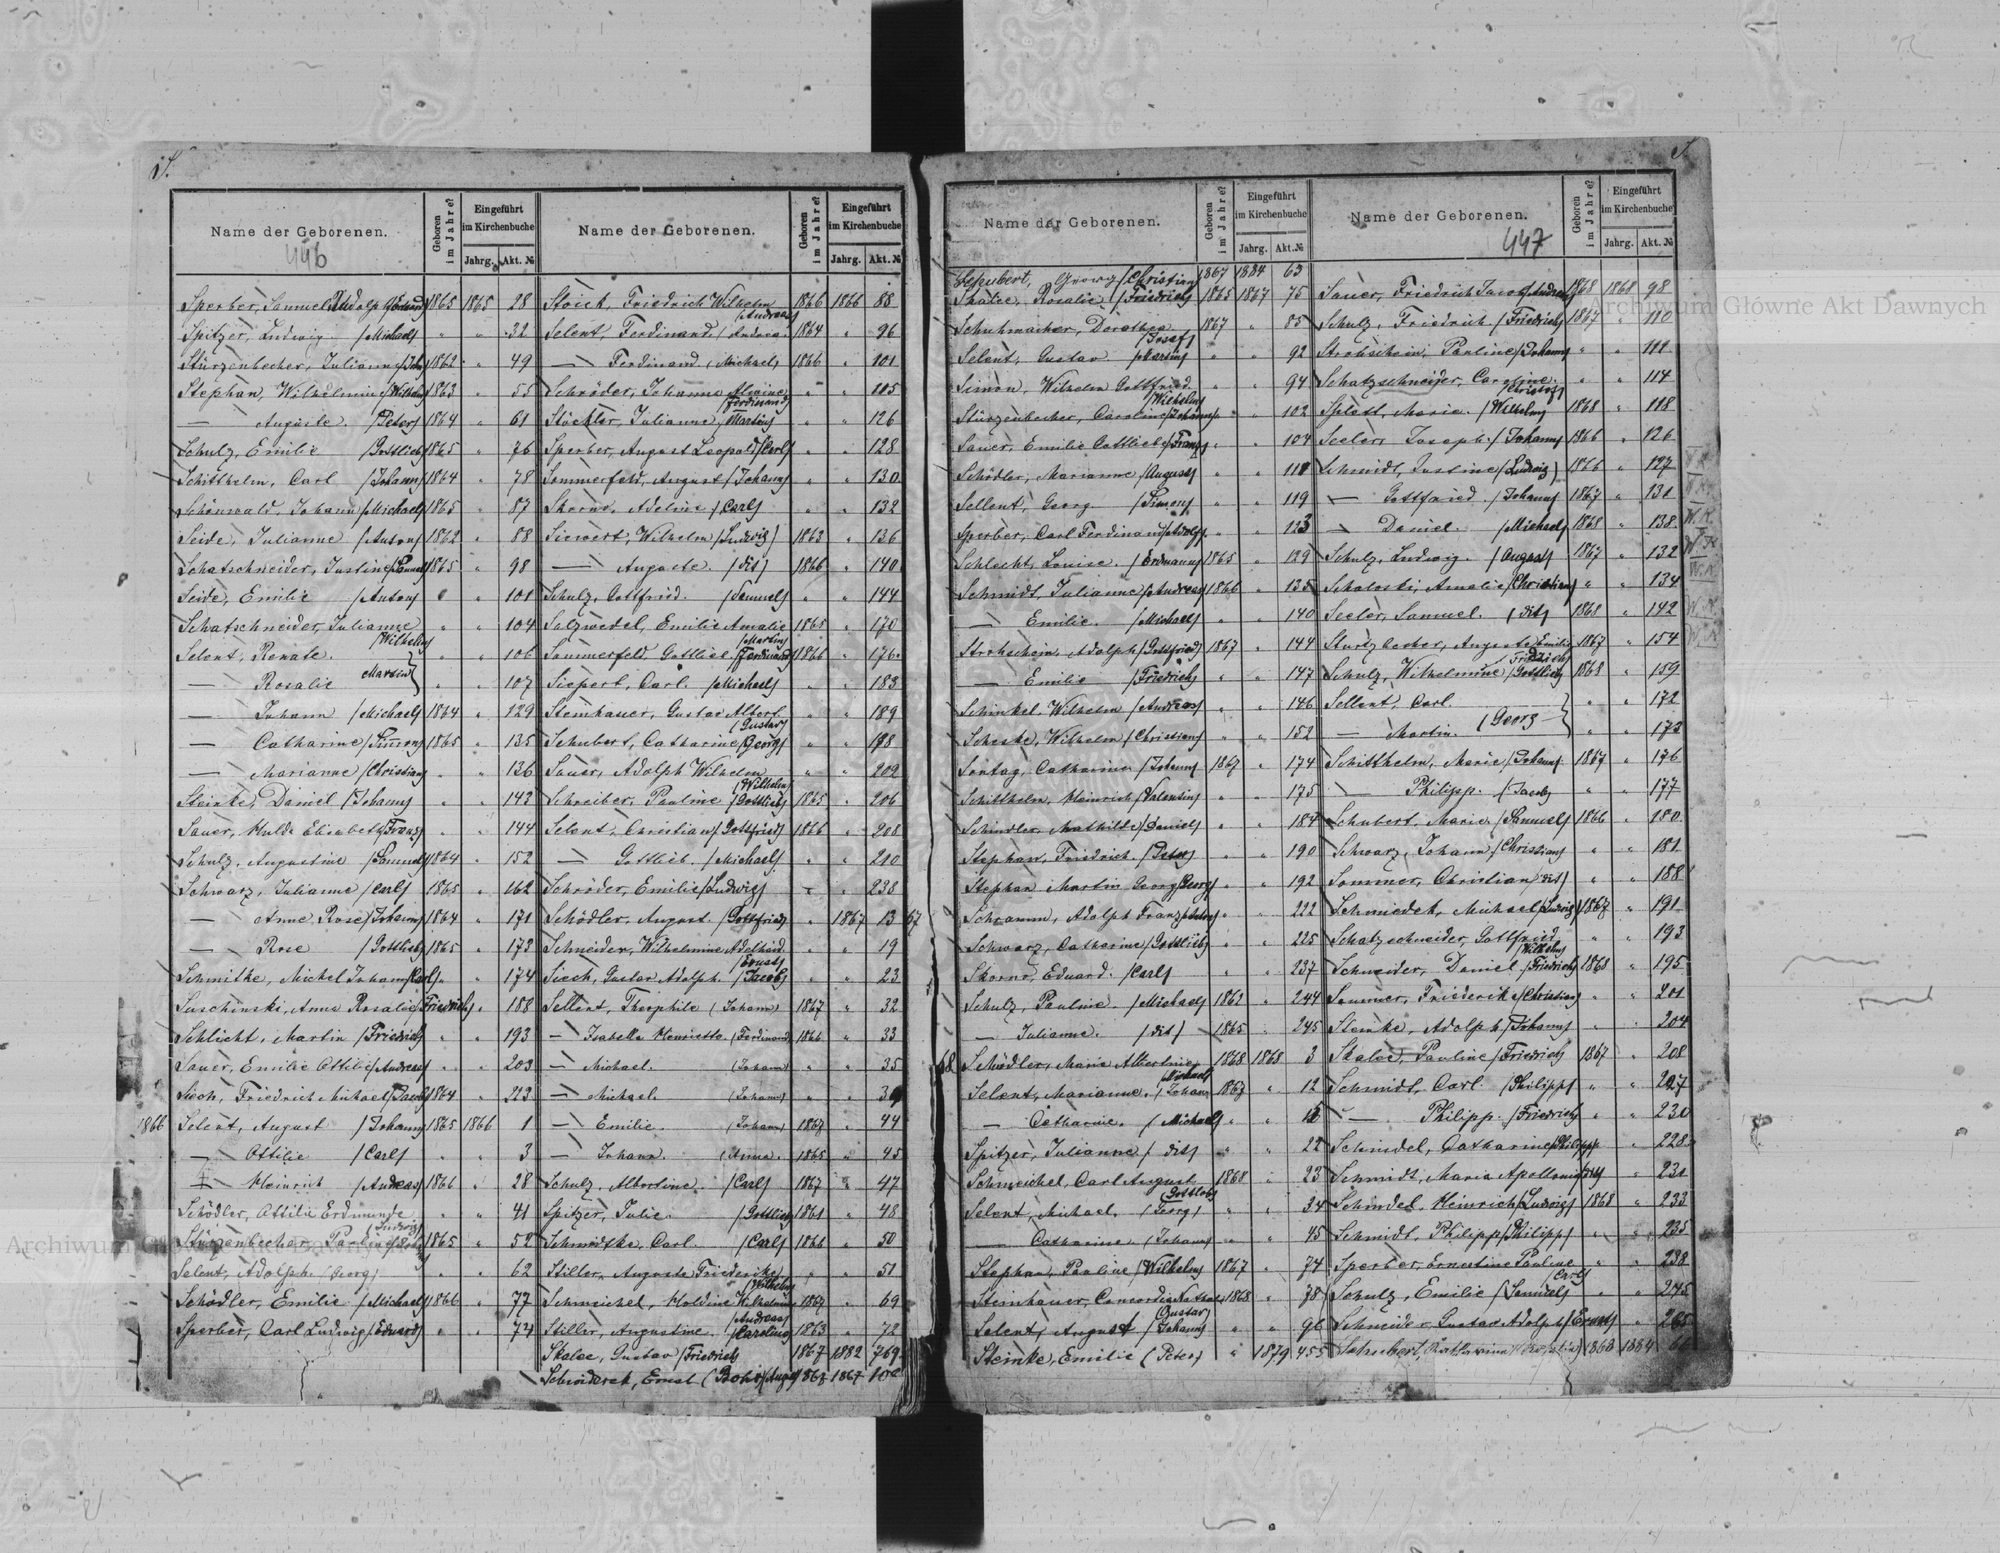 S.
Name der Geborenen.
Geboren im Jahre?
Eingeführt im Kirchenbuche
Jahrg. Akt. №
446
Sperber, Samuel Rudolph /Eduard/ 1865 1865 28
Spitzer, Ludwig /Michael/ " " 32
Stürzenbecher, Julianne /Joh/ 1862 " 49
Stephan, Wilhelmine /Wilhelm/ 1863 " 55
— Auguste. /Peter/ 1864 " 61
Schulz, Emilie /Gottlieb/ 1865 " 76
Schitthelm, Carl /Johann/ 1864 " 78
Schönwald, Johann /Michael/ 1865 " 87
Seide, Julianne /Anton/ 1862 " 88
Schatschneider, Justine /Samuel/ 1865 " 98
Seide, Emilie /Anton/ " " 101
Schatschneider, Julianne /Wilhelm/ " " 104
Selent, Renate. " " 106
— Rosalie /Martin/ " " 107
— Johann /Michael/ 1864 " 129
— Catharine /Simon/ 1865 " 135
— Marianne /Christian/ " " 136
Steinke, Daniel /Johann/ " " 143
Sauer, Hulda Elisabeth /Franz/ " " 144
Schulz, Augustine /Samuel/ 1864 " 152
Schwarz, Julianne /Carl/ 1865 " 162
— Anne Rose /Johann/ 1864 " 171
— Rose /Gottlieb/ 1865 " 173
Schmitke, Michel Johann /Carl/ " " 174
Suschinski, Anna Rosalie /Friedrich/ " " 188
Schlicht, Martin /Friedrich/ " " 193
Sauer, Emilie Ottilie /Andreas/ " " 203
Siech, Friedrich Michael /Jacob/ 1864 " 223
1866 Selent, August /Johann/ 1865 1866 1
— Ottilie /Carl/ " " 3
— Heinrich /Andreas/ 1866 " 28
Schödler, Ottilie Erdmunde /Ludwig/ " " 41
Stürzenbecher, Pauline 1865 " 52
Selent, Adolph (Georg) " " 62
Schödler, Emilie /Michael/ 1866 " 77
Sperber, Carl Ludwig /Eduard/ " " 74
Name der Geborenen.
Geboren im Jahre?
Eingeführt im Kirchenbuche
Jahrg. Akt. №
Friedrich Wilhelm /Andreas/ 1866 1866 88
Selent, Ferdinand /Andreas/ 1864 " 96
— Ferdinand /Michael/ 1866 " 101
Schröder, Johanne /Ferdinand/ " " 105
Stöckler, Julianne /Martin/ " " 126
Sperber, August Leopold /Carl/ " " 128
Sommerfeld, August /Johann/ " " 130
Skorno, Adeline /Carl/ " " 132
Siewert, Wilhelm /Ludwig/ 1863 " 136
— Auguste. /dit/ 1866 " 140
Schulz, Gottfried. /Samuel/ " " 144
Salzwedel, Emilie Amalie /Martin/ 1865 " 170
Sommerfeld, Gottlieb /Ferdinand/ 1866 " 176
Siepert, Carl. /Michael/ " " 183
Steinhauer, Gustav Albert /Gustav/ " " 189
Schubert, Catharine /Georg/ " " 198
Sauer, Adolph Wilhelm /Wilhelm/ " " 202
Schreiber, Pauline /Gottlieb/ 1865 " 206
Selent, Christian /Gottfried/ 1866 " 208
— Gottlieb. /Michael/ " " 210
Schröder, Emilie /Ludwig/ " " 238
Schödler, August. /Gottfried/ " 1867 13 67
Schneider, Wilhelmine Adelheid /Ernst/ " " 19
Siech, Gustav Adolph. /Jacob/ " " 23
Sellent, Theophile (Johann) 1867 " 32
— Isabella Henriette. (Ferdinand) 1866 " 33
— Michael. (Johann) " " 35
— Michael. (Johann) " "
— Emilie. (Johann) 1867 " 44
— Johann. (Anna. 1865 " 45
Schulz, Albertine. /Carl/ 1867 " 47
Spitzer, Julie. /Gottlieb/ 1861 " 48
Schmidtke, Carl. /Carl/ 1866 " 50
Stiller, Auguste Friederike /Wilhelm/ " " 51
Schmeichel, Wilhelmine /Andreas/ 1867 " 69
Stiller, Augustine. /Caroline/ 1863 " 72
Skalee, Gustav /Friedrich/ 1867 1882 769
Ernst 1867 1867
S.
Name der Geborenen.
Geboren im Jahre?
Eingeführt im Kirchenbuche
Jahrg. Akt. №
Schubert, Georg /Christian/ 1867 1884 63
Skalee, Rosalie /Friedrich/ 1865 1867 75
Schuhmacher, Dorothea /Josef/ 1867 " 85
Selent, Gustav /Martin/ " " 92
Simon, Wilhelm Gottfried /Wilhelm/ " " 94
Stürzenbecher, Caroline /Johann/ " " 102
Sauer, Emilie Gottliebe /Franz/ " " 104
Schödler, Marianne /August/ " " 111
Sellent, Georg /Simon/ " " 119
Sperber, Carl Ferdinand /Adolf/ " " 123
Schlecht, Louise. /Erdmann/ 1865 " 129
Schmidt, Julianne /Andreas/ 1866 " 135
— Emilie. /Michael/ " " 140
Strohschein, Adolph /Gottfried/ 1867 " 144
— Emilie /Friedrich/ " " 147
Schinkel, Wilhelm /Andreas/ " " 146
Scheske, Wilhelm /Christian/ " " 152
Sontag, Catharina /Johann/ 1867 " 174
Schitthelm, Heinrich /Valentin/ " " 175
Schindler, Mathilde /Daniel/ " " 184
Stephan, Friedrich. /Peter/ " " 190
Stephan Martin Georg /Georg/ " " 192
Schramm, Adolph Franz " " 222
Schwarz, Catharine /Gottlieb/ " " 225
Skorno, Eduard. /Carl/ " 237
Schulz, Pauline. /Michael/ 1862 " 244
— Julianne. /dit/ 1865 " 245
68 Schödler, Maria Albertine /Michael/ 1868 1868 3
Selent, Marianne. /Johann 1867 " 12
— Catharine. /Michael/ " " 15
Spitzer, Julianne / dit/ " " 22
Schmeichel, Carl August /Gottlob/ 1868 " 23
Selent, Michael. (Georg) " " 34
— Catharine. (Johann) " " 45
Stephan, Pauline /Wilhelm/ 1867 " 74
Steinhauer, Concordia /Gustav/ 1868 " 78
Selent, August /Johann/ " " 96
Steinke, Emilie (Peter) " 1879 455
Name der Geborenen.
447
Geboren im Jahre?
Eingeführt im Kirchenbuche
Jahrg. Akt. №
Sauer, Friedrich Jacob /Andreas/ 1868 1868 98
Schulz, Friedrich /Friedrich/ 1867 " 110
Strohschein, Pauline /Johann/ " " 111
Schatzschneider, Caroline. /Christof/ " " 114
Splett, Marie. /Wilhelm/ 1868 " 118
Seeler, Joseph. /Johann/ 1866 " 126
Schmidt, Justine /Ludwig/ 1866 " 127
— Gottfried. /Johann/ 1867 " 131
— Daniel. /Michael/ 1868 " 138 W. K.
Schulz, Ludwig. /August/ 1867 " 132 W. K
Schaloski, Amalie /Christian/ " " 134 W. K
Seeler, Samuel. /dit/ 1868 " 142 W. K
Sturzbecher, Auguste Emilie /Friedrich/ 1867 " 154 W. K
Schulz, Wilhelmine /Gottlieb/ 1868 " 159
Sellent, Carl. " " 172
— Martin. (Georg " " 173
Schitthelm, Marie /Johann/ 1867 " 176
— Philipp. /Jacob/ " " 177
Schubert, Marie. /Samuel/ 1866 " 180
Schwarz, Johann /Christian/ " " 181
Sommer, Christian /dit/ " " 188
Schmiedek, Michael /Ludwig/ 1867 " 191
Schatzschneider, Gottfried /Wilhelm/ " " 193
Schneider, Daniel /Friedrich/ 1868 " 195
Sommer, Friederike /Christian/ " " 201
Steinke, Adolph /Johann/ " " 204
Skalee, Pauline /Friedrich/ 1867 " 208
Schmidt, Carl. /Philipp/ " " 227
— Philipp. /Friedrich/ " " 230
Schindel, Catharine /Philipp/ " " 228
Schmidt, Maria Apollonia /dit/ " " 231
Schindel, Heinrich /Ludwig/ 1868 " 233
Schmidt, Philipp /Philipp/ " " 235
Sperber, Ernestine Pauline /Carl/ " " 238
Schulz, Emilie /Samuel/ " " 245
Schneider Gustav Adolph /Ernst/ " " 265
Schubert, Katharina 1868 1884 66
Archiwum Główne Akt Dawnych
Archiwum Główne Akt Dawnych